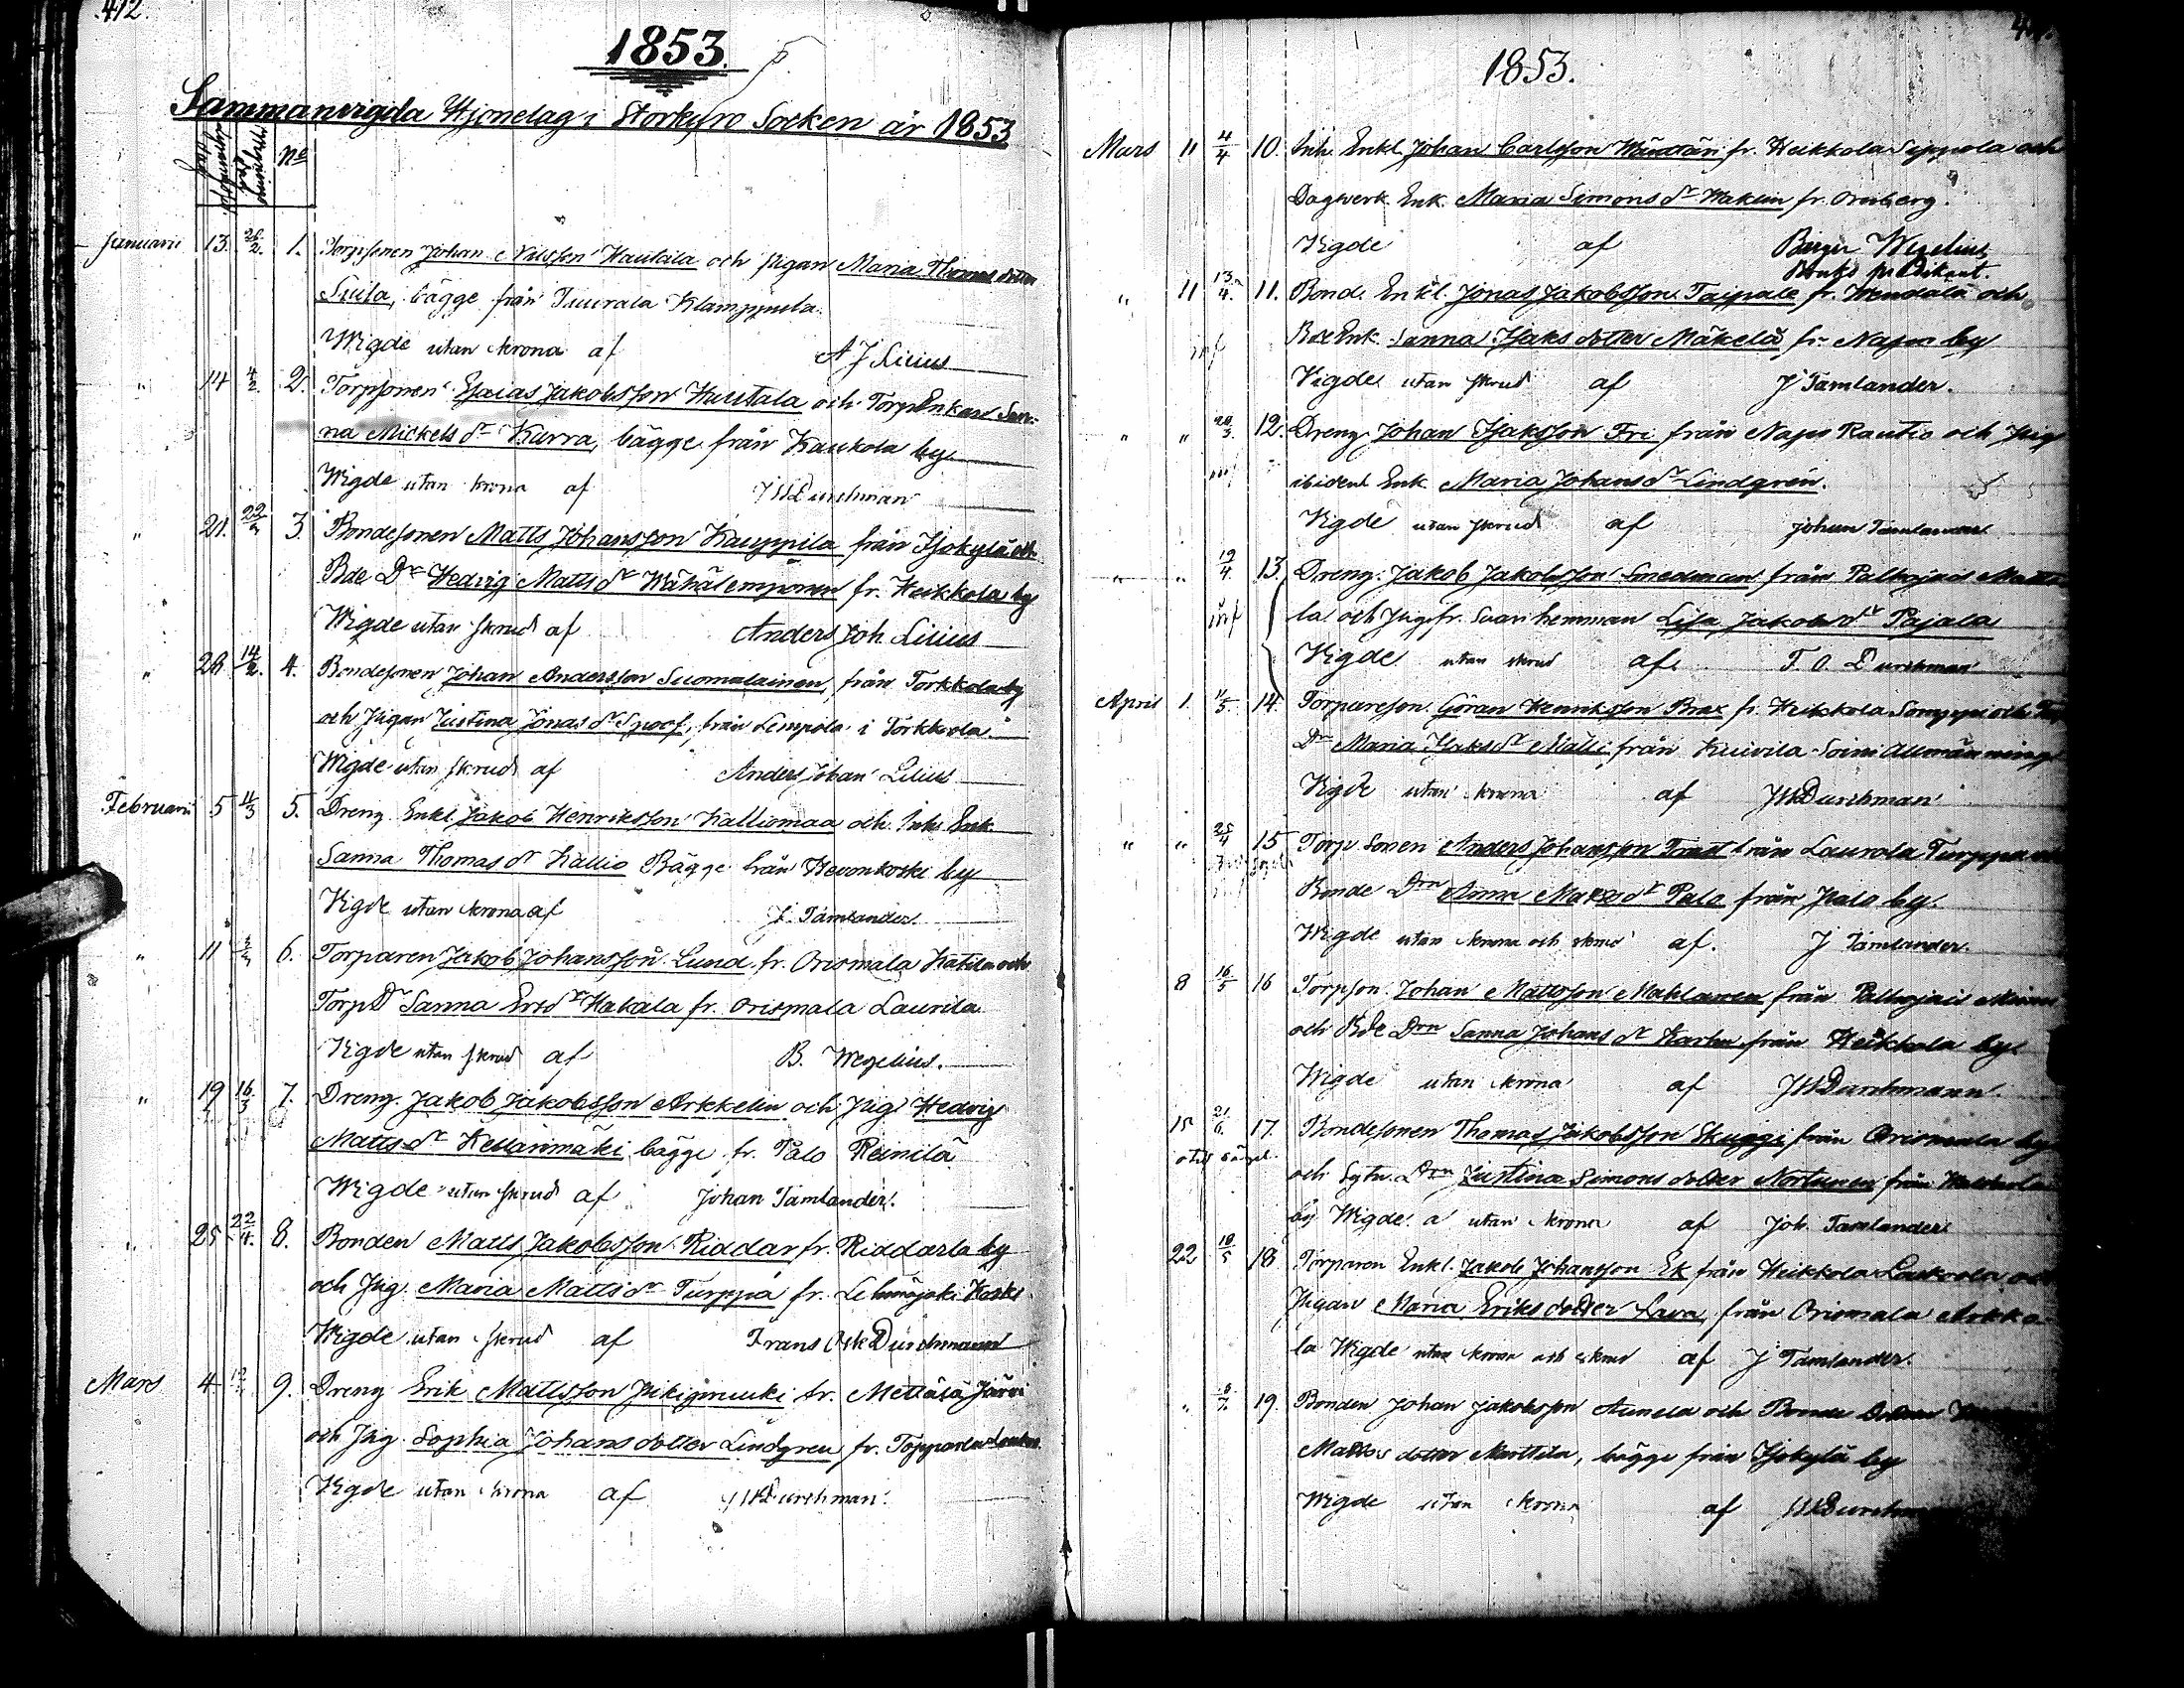 412.
1853.
Sammanvigda Hjonelag i Storkyro Socken år 1853
No
Januarii 13. 1. Torpsonen Johan Nilsson Hautala och Pigan Maria Thomas dotter
Suila, bägge från Tuurala Klamppula.
Wigde utan krona af A J Lilius
" 14 4/2. 2. Torpsonen Esaias Jakobsson Huutala och TorpEnkan San-
na Mickels dr Kurra, bägge från Kaukola by
Wigde utan krona af JWDurchman
" 21. 3. Bondesonen Matts Johansson Kauppila från Isokylä och
Bde Dr Hedvig Matts dr Wähälemponen fr. Heikkola by
Wigde utan skrud af Anders Joh. Lilius
" 28 14/2. 4. Bondesonen Johan Andersson Suomalainen, från Torkkola by
och Pigan Justina Jonas dr Spoof, från Lempola i Torkkola.
Wigde utan skrud af Anders Johan Lilius
Februarii 5 11/3 5. Dreng. Enkl. Jakob Henriksson Kalliomaa och Inh. Enk.
Sanna Thomas dr Kallio Bägge från Hevonkoski by
Vigde utan krona af J. Tamlander.
" 11 6. Torparen Jakob Johansson Lund fr. Orismala Katila och
TorpDr Sanna Ersdr Hakala fr. Orismala Laurila
Vigde utan skrud af B. Wegelius.
" 19 16/3 7. Dreng. Jakob Jakobsson Arkkelin och Pig. Hedvig
Matts dr Kellarimäki bägge fr. Palo Reinilä
Wigde utan skrud af Johan Tamlander.
" 25 22/4. 8. Bonden Matts Jakobsson Riddar fr. Riddarla by
och Pig. Maria Matts dr Turppa fr. Lehmäjoki Koski
Wigde utan skrud af Frans Osk Durchmann
Mars 4 9. Dreng Erik Mattsson fr. Mettäsä Järvi
och Pig. Sophia Johans dotter Lindgren fr. Topparla
Vigde utan krona af JWDurchman.
1853.
Mars 11 4/4 10. Inh. Enkl. Johan Carlsson fr. Heikkola Seppola och
Dagsverk. Enk. Maria Simons dr Waklin fr. Orisberg.
Vigde af Birger Wegelius,
Bruks predikant.
" 11 13/4. 11. Bond. Enkl. Jonas Jakobsson Taipale fr. Wendälä och
inf BdeEnk. Sanna Isaks dotter Mäkelä fr. Napo by
Vigde utan skrud af J Tamlander.
" " 20/3. 12. Dreng Johan Isaksson Fri från Napo Rautio och Pig
inf ibident Enk. Maria Johans dr Lindgren.
Vigde utan skrud af Johan Tamlander
" " 19/4. 13. Dreng. Jakob Jakobsson Smedman från Palhojais
inf la och Pig. fr. Svari hemman Lisa Jakobs dr Pajala
Vigde utan skrud af F. O. Durchman
April 1. 11/5. 14. Torpareson. Göran Henriksson Brax fr. Heikkola Somppi och
Dr Maria Isaks dr Mälli från Kuivila Soini Allmänning
Vigde utan krona af JWDurchman
" " 25/4 15 Torp Sonen Anders Johansson Trast från Laurola Turppa
Bonde Drn Anna Matts dr Palo från Palo by.
Wigde utan krona och skrud af. J Tamlander.
8 16/5 16 Torpson. Johan Mattsson Mahlanen från Palhojais
och Bde Drn Sanna Johans dr Karhu från Heikkola by.
Wigde utan krona af JWDurchmann.
15 21/6. 17. Bondesonen Thomas Jakobsson Skuggi från Orismala by
och Sytn. Drn Justina Simons dotter Nortunen från
by Wigde a utan krona af Joh. Tamlander
22 18/5 18 Torparen Enkl. Jakob Johansson Ek från Heikkola Laskoola
Pigan Maria Eriks dotter Lava, från Orismala Arkko-
la Wigde utan krona och skrud af J Tamlander.
" 6/7. 19. Bonden Johan Jakobsson Aunela och Bonde
Matts dotter Marttila, bägge från Isokylä by
Wigde utan krona af JWDurchm